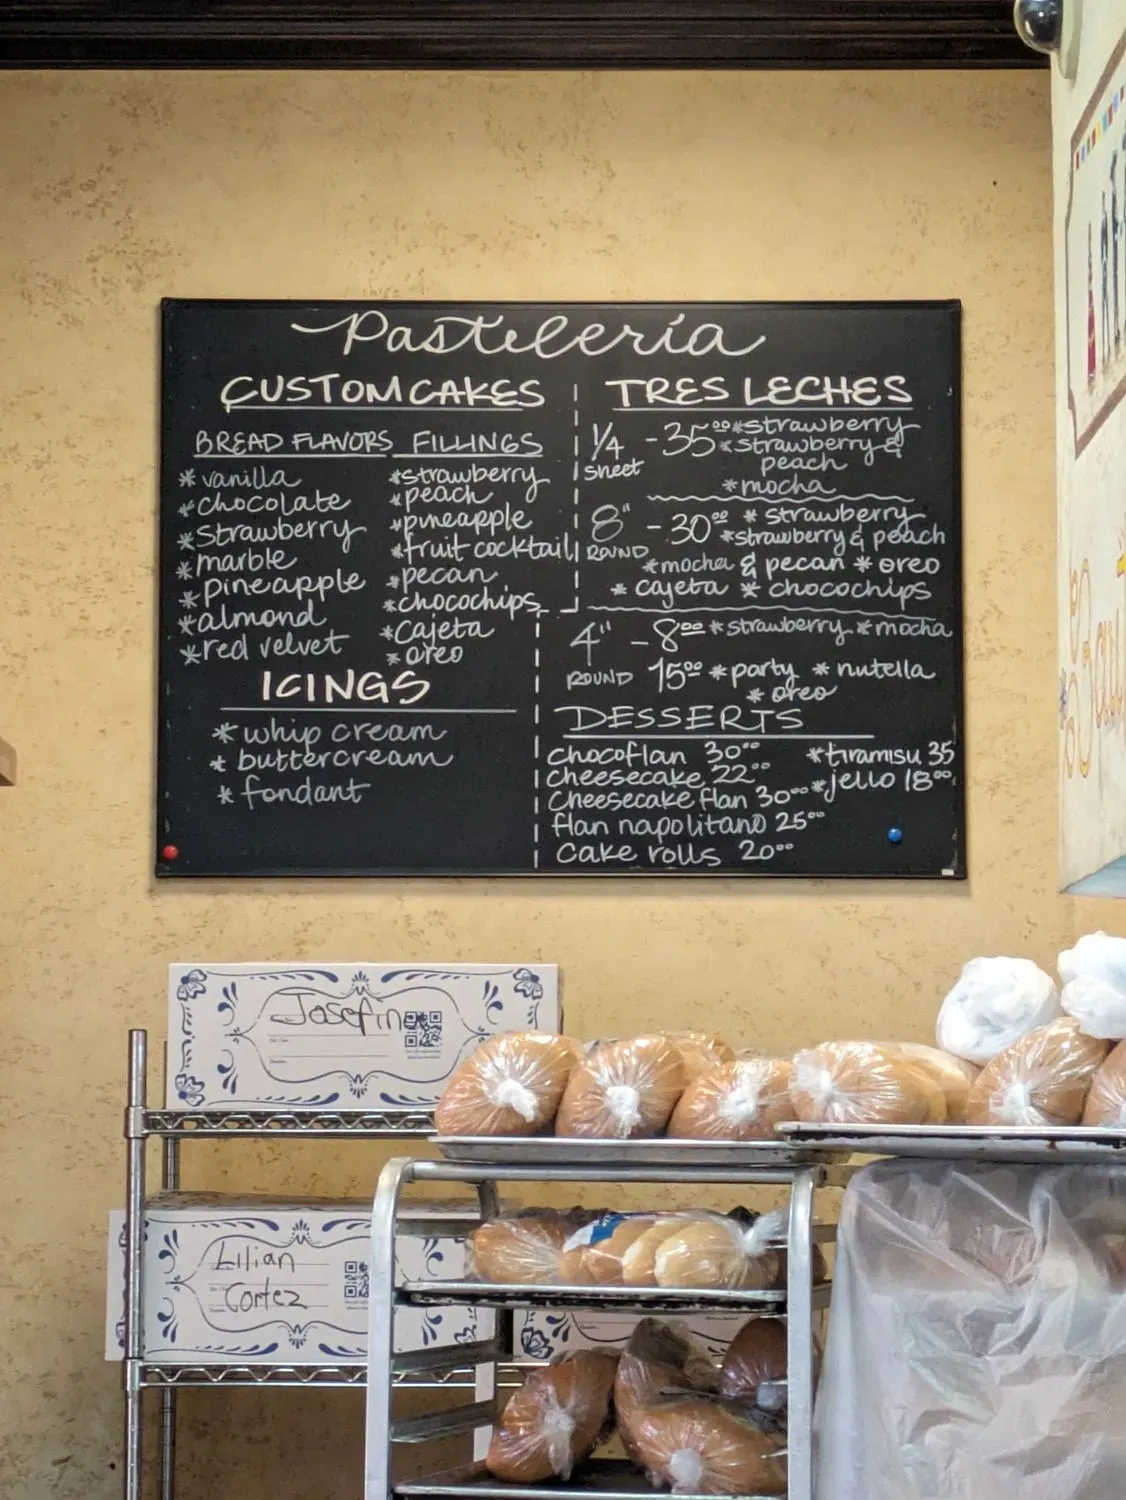 Pastelería
CUSTOM CAKES
BREAD FLAVORS
* vanilla
* chocolate
* strawberry
* marble
* pineapple
* almond
* red velvet
FILLINGS
* strawberry
* peach
* pineapple
* fruit cocktail
* pecan
* chocochips
* cajeta
* oreo
ICINGS
* whip cream
* buttercream
* fondant
TRES LECHES
1/4 - 35⁰⁰ * strawberry
sheet * strawberry &
peach
* mocha
8" - 30⁰⁰ * strawberry
ROUND * strawberry & peach
* mocha & pecan * oreo
* cajeta * chocochips
4" - 8⁰⁰ * strawberry * mocha
ROUND 15⁰⁰ * party * nutella
* oreo
DESSERTS
Chocoflan 30⁰⁰
cheesecake 22⁰⁰
Cheesecake flan 30⁰⁰
flan napolitano 25⁰⁰
Cake rolls 20⁰⁰
* tiramisu 35
* jello 18⁰⁰
Josefina
Lilian
Cortez